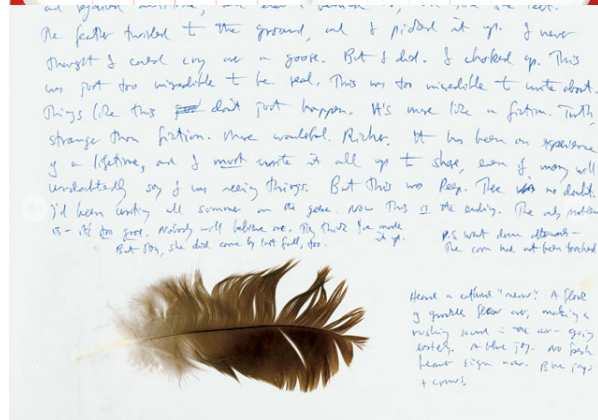 The feather twirled to the ground, and I picked it up. I never
thought I could cry over a goose. But I did. I choked up. This
was just too incredible to be real. This was too incredible to write about.
Things like this don't just happen. It's more like a fiction. Truth,
stranger than fiction. More wonderful. Richer. It has been an experience
of a lifetime, and I must write it all up to share, even if many will
undoubtedly say I was seeing things. But this was Peep. There was no doubt.
I'd been writing all summer on the geese. Now This is the ending. The only problem
is - it's too good. Nobody will believe me. They think I've made
it up.
But boy, she did come by last fall, too.
P.S went down afterwards -
The corn had not been touched
Heard a catbird "meow". A flock
of grackles flew over, making a
rushing sound in the air - going
. A blue jay. No fresh
beaver sign now. Blue jays
+ crows